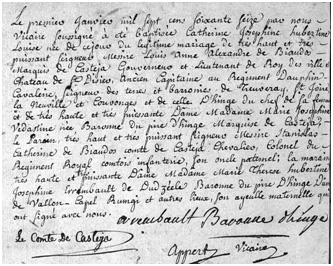 Le premier Janvier mil sept cens soixante seize par nous
Vicaire soussigné a été baptisée Catherine Josephine hubertine
Louise née de ce jour du légitime mariage de très haut et très
puissant seigneur Messire Louis Anne Alexandre de Biaudos
Marquis de Casteja Gouverneur et Lieutenant de Roy des ville et
Chateau de St Dizier, Ancien Capitaine au Regiment Dauphin
Cavalerie, seigneur des terres et baronies de
la Neuville et Couvonges et de celle D'hinge du chef de sa
et de très haute et très puissante Dame Madame Marie Josephe
Vedastine née Baronne du Marquise de Casteja,
le Parain, très haut et très puissant seigneur Messire Stanislas
Catherine de Biaudos comte de Casteja Chevalier, Colonel du
Regiment Royal comtois infanterie, son oncle paternel; la maraine
très haute et puissante Dame Madame Marie Therese hubertine
Josephine de Baronne du D'hinge Dame
de et autres lieux, son ayeulle maternelle qui
ont signé avec nous. Baronne d'hinge
Le Comte De Casteja
Appert Vicaire